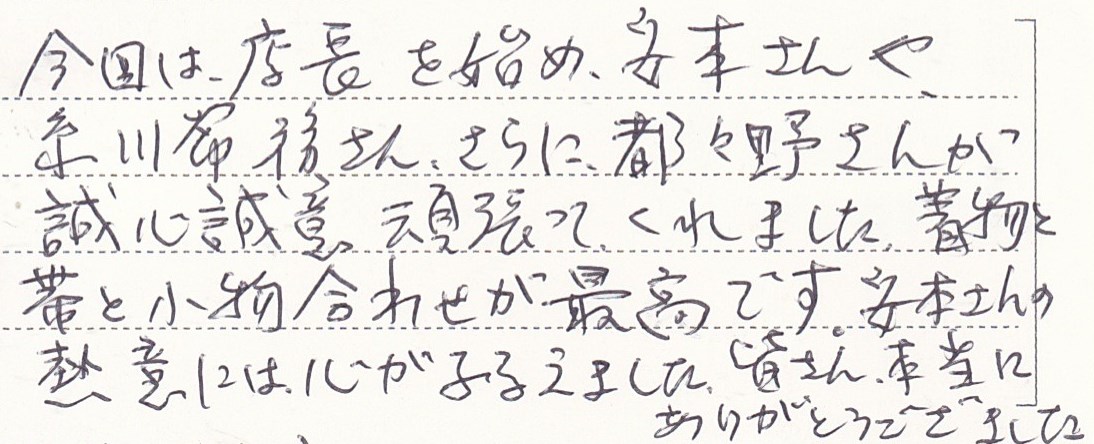 今回は、店長を始め、安本さんや、
糸川さん、さらに、都々野さんが
誠心誠意頑張って、くれました。着物と
帯と小物合わせが最高です。安本さんの
熱意には、心がふるえました。皆さん、本当に
ありがとうございました